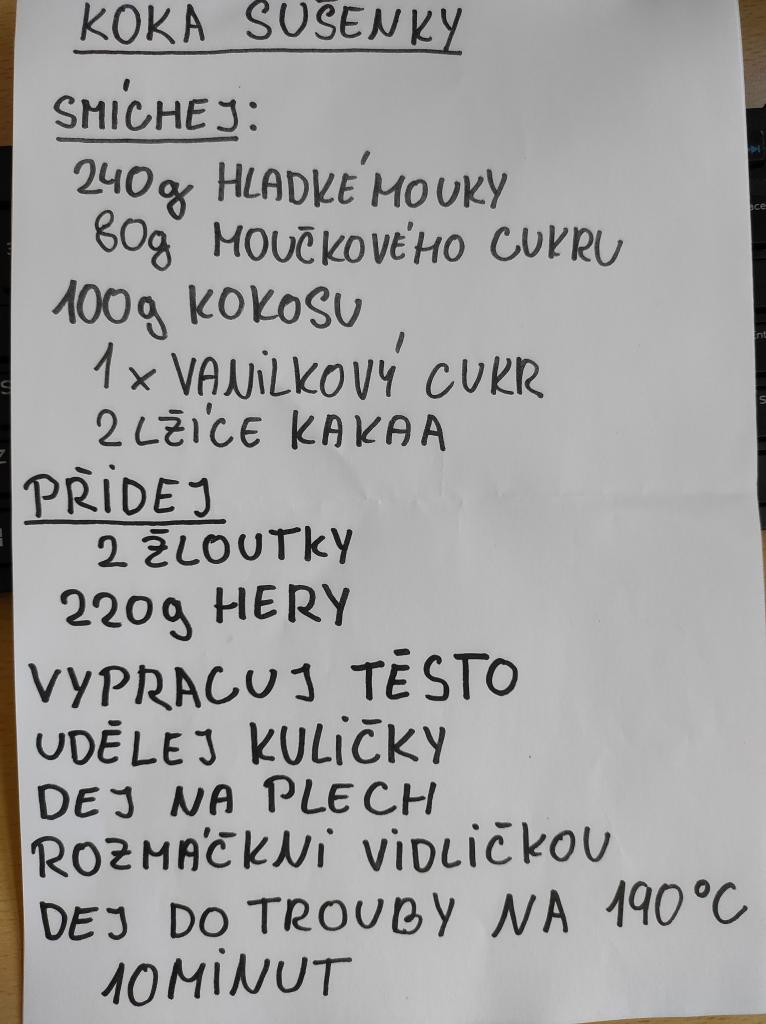 KOKA SUŠENKY
SMÍCHEJ:
240g HLADKÉ MOUKY
80g MOUČKOVÉHO CUKRU
100g KOKOSU
1x VANILKOVÝ CUKR
2 LŽÍCE KAKAA
PŘIDEJ
2 ŽLOUTKY
220g HERY
VYPRACUJ TĚSTO
UDĚLEJ KULIČKY
DEJ NA PLECH
ROZMÁČKNI VIDLIČKOU
DEJ DO TROUBY NA 190°C
10 MINUT